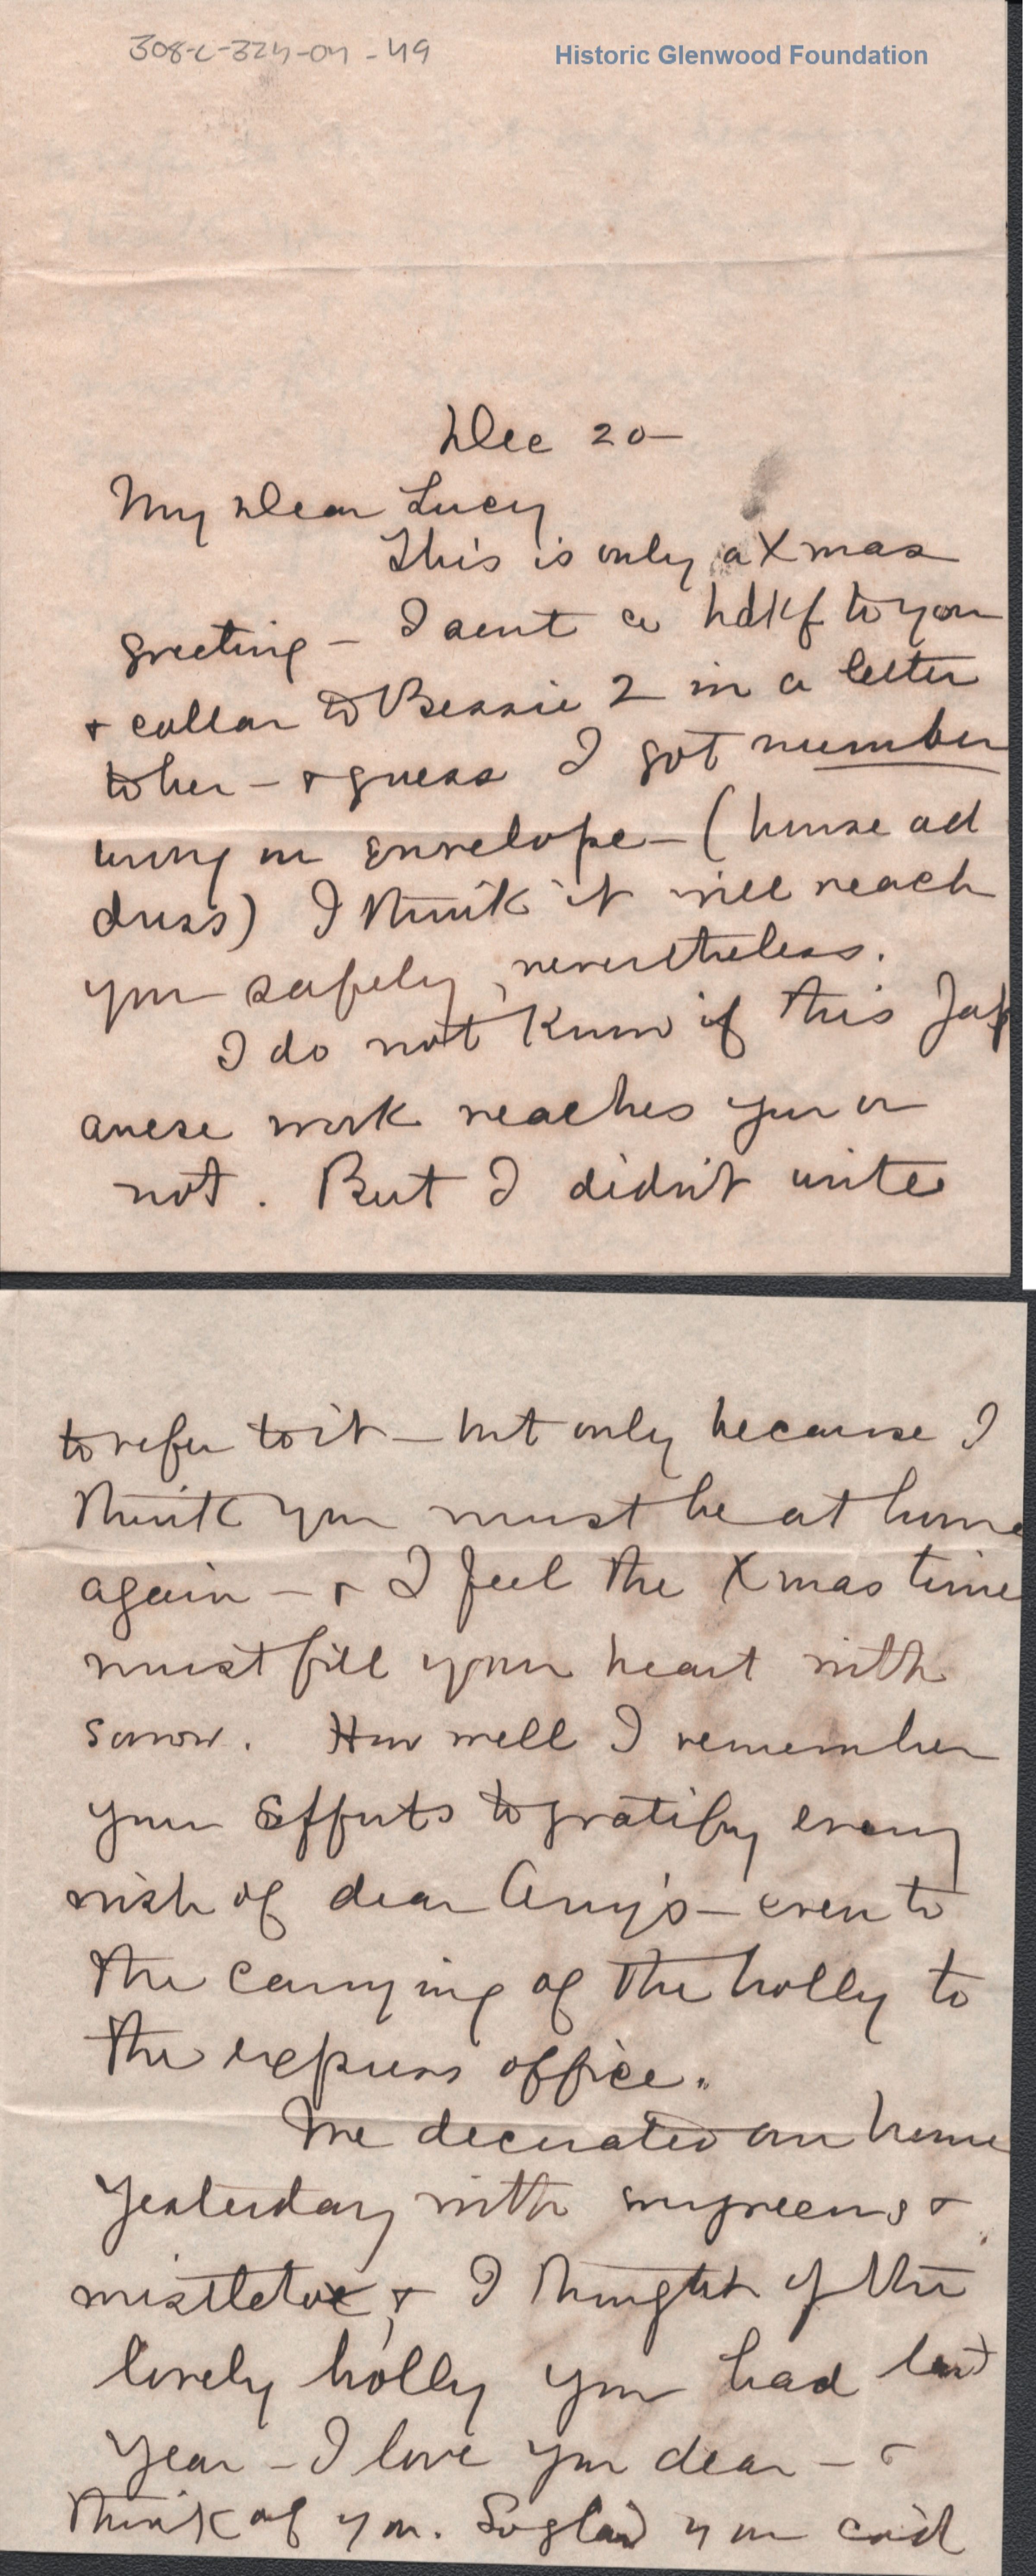 308-L-324-04-49
Historic Glenwood Foundation
Dec 20-
My Dear Lucy
This is only a Xmas
greeting - I sent a hdkf to you
+ collar to Bessie 2 in a letter
to her - + guess I got number
wrong on envelope - (house ad
dress) I think it will reach
you safely, nevertheless.
I do not know if this Jap
anese work reaches you or
not. But I didn't write
to refer to it - but only because I
think you must be at home
again - + I feel the Xmas time
must fill your heart with
sorrow. How well I remember
your efforts to gratify every
wish of dear Amy's - even to
the carrying of the holly to
the express office.
We decorated our home
yesterday with evergreens +
mistletoe, + I thought of the
lovely holly you had last
year - I love you dear - +
think of you. So glad you could